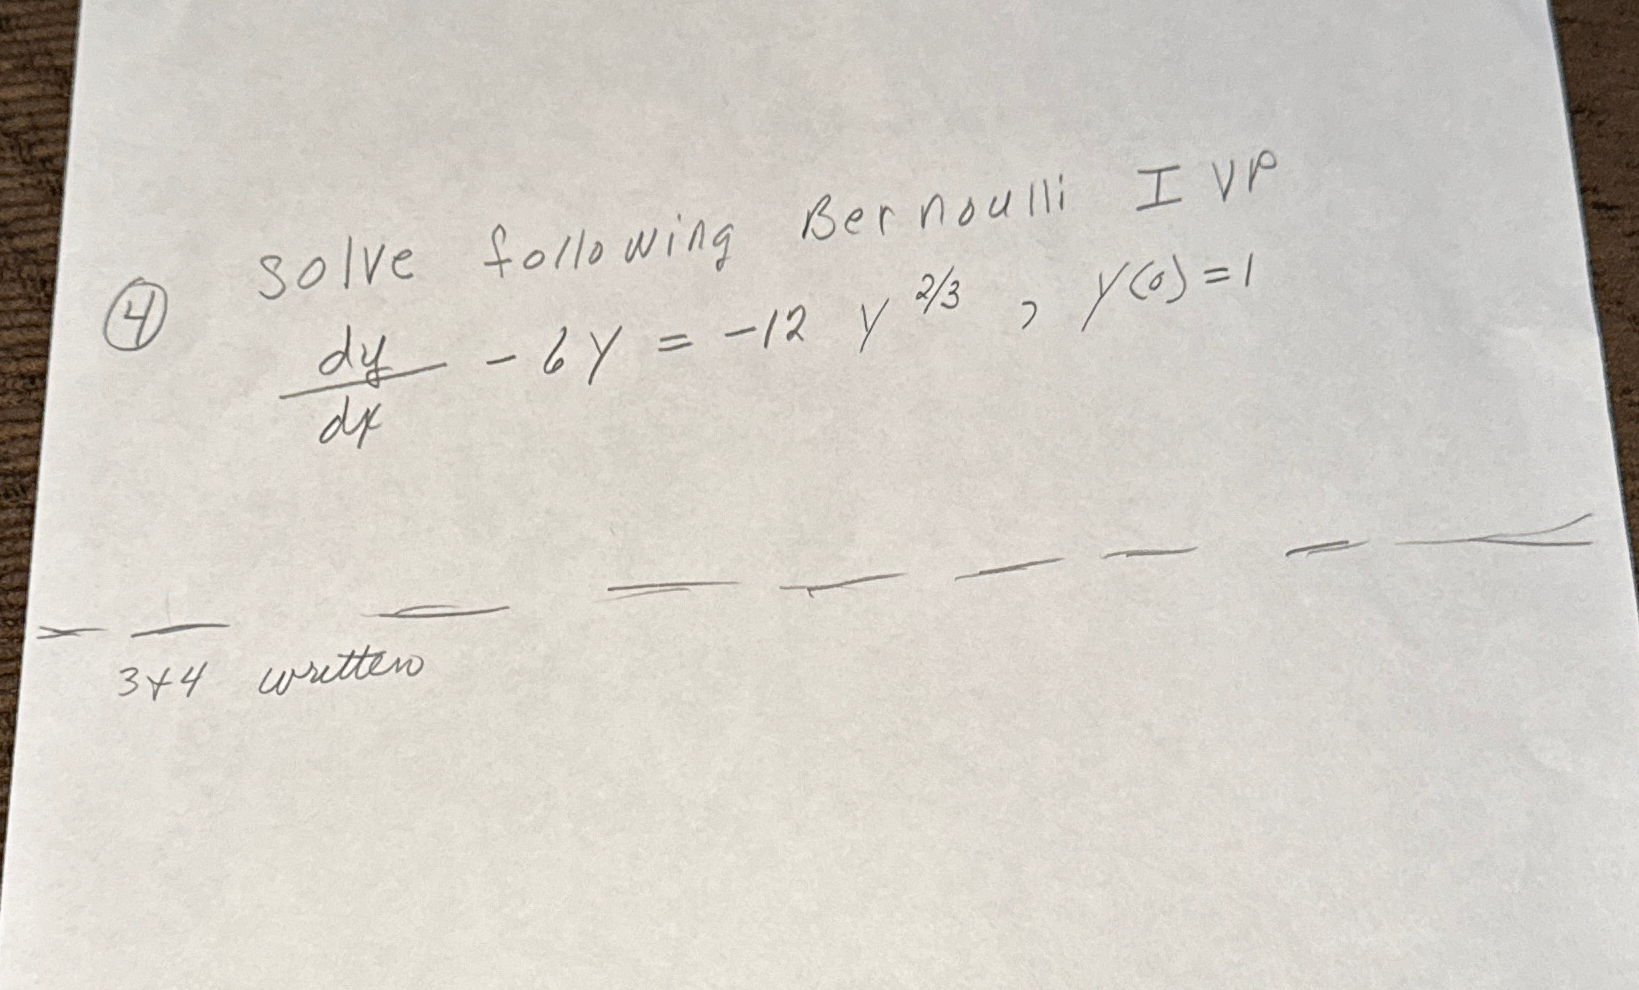 ④ solve following Bernoulli IVP
dy/dx - 6y = -12 y^{2/3} , y(0) = 1
3+4 written